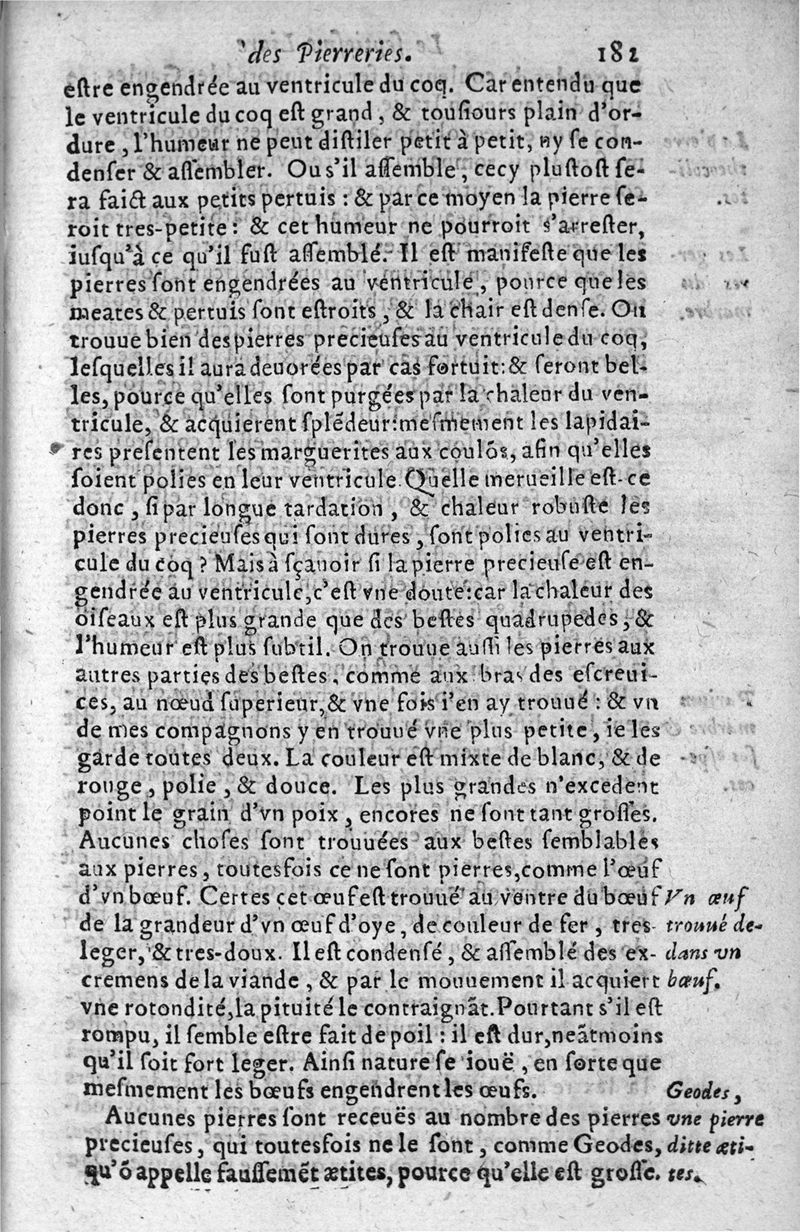 des Pierreries. 181
eſtre engendrée au ventricule du coq. Car entendu que
le ventricule du coq eſt grand, & touſiours plain d'or-
dure, l'humeur ne peut diſtiler petit à petit, ny ſe con-
denſer & aſſembler. Ou s'il aſſemble, cecy pluſtoſt ſe-
ra faict aux petits pertuis : & par ce moyen la pierre ſe-
roit tres-petite : & cet humeur ne pourroit s'arreſter,
iuſqu'à ce qu'il fuſt aſſemblé. Il eſt manifeſte que les
pierres ſont engendrées au ventricule, pource que les
meates & pertuis ſont eſtroits, & la chair eſt denſe. On
trouue bien des pierres precieuſes au ventricule du coq,
leſquelles il aura deuorées par cas fortuit: & ſeront bel-
les, pource qu'elles ſont purgées par la chaleur du ven-
tricule, & acquierent ſplẽdeur: meſmement les lapidai-
res preſentent les marguerites aux coulõs, afin qu'elles
ſoient polies en leur ventricule. Quelle merueille eſt-ce
donc, ſi par longue tardation, & chaleur robuſte les
pierres precieuſes qui ſont dures, ſont polies au ventri-
cule du coq ? Mais à ſçauoir ſi la pierre precieuſe eſt en-
gendrée au ventricule, c'eſt vne doute: car la chaleur des
oiſeaux eſt plus grande que des beſtes quadrupedes, &
l'humeur eſt plus ſubtil. On trouue auſſi les pierres aux
autres parties des beſtes, comme aux bras des eſcreui-
ces, au nœud ſuperieur, & vne fois i'en ay trouué : & vn
de mes compagnons y en trouué vne plus petite, ie les
garde toutes deux. La couleur eſt mixte de blanc, & de
rouge, polie, & douce. Les plus grandes n'excedent
point le grain d'vn poix, encores ne ſont tant groſſes.
Aucunes choſes ſont trouuées aux beſtes ſemblables
aux pierres, toutesfois ce ne ſont pierres, comme l'œuf
d'vn bœuf. Certes cet œuf eſt trouué au ventre du bœuf Vn œuf
de la grandeur d'vn œuf d'oye, de couleur de fer, tres- trouué de-
leger, & tres-doux. Il eſt condenſé, & aſſemblé des ex- dans vn
cremens de la viande, & par le mouuement il acquiert bœuf.
vne rotondité, la pituité le contraignãt. Pourtant s'il eſt
rompu, il ſemble eſtre fait de poil : il eſt dur, neãtmoins
qu'il ſoit fort leger. Ainſi nature ſe iouë, en ſorte que
meſmement les bœufs engendrent les œufs. Geodes,
Aucunes pierres ſont receuës au nombre des pierres vne pierre
precieuſes, qui toutesfois ne le ſont, comme Geodes, ditte æti-
qu'õ appelle fauſſemẽt ætites, pource qu'elle eſt groſſe. tes.